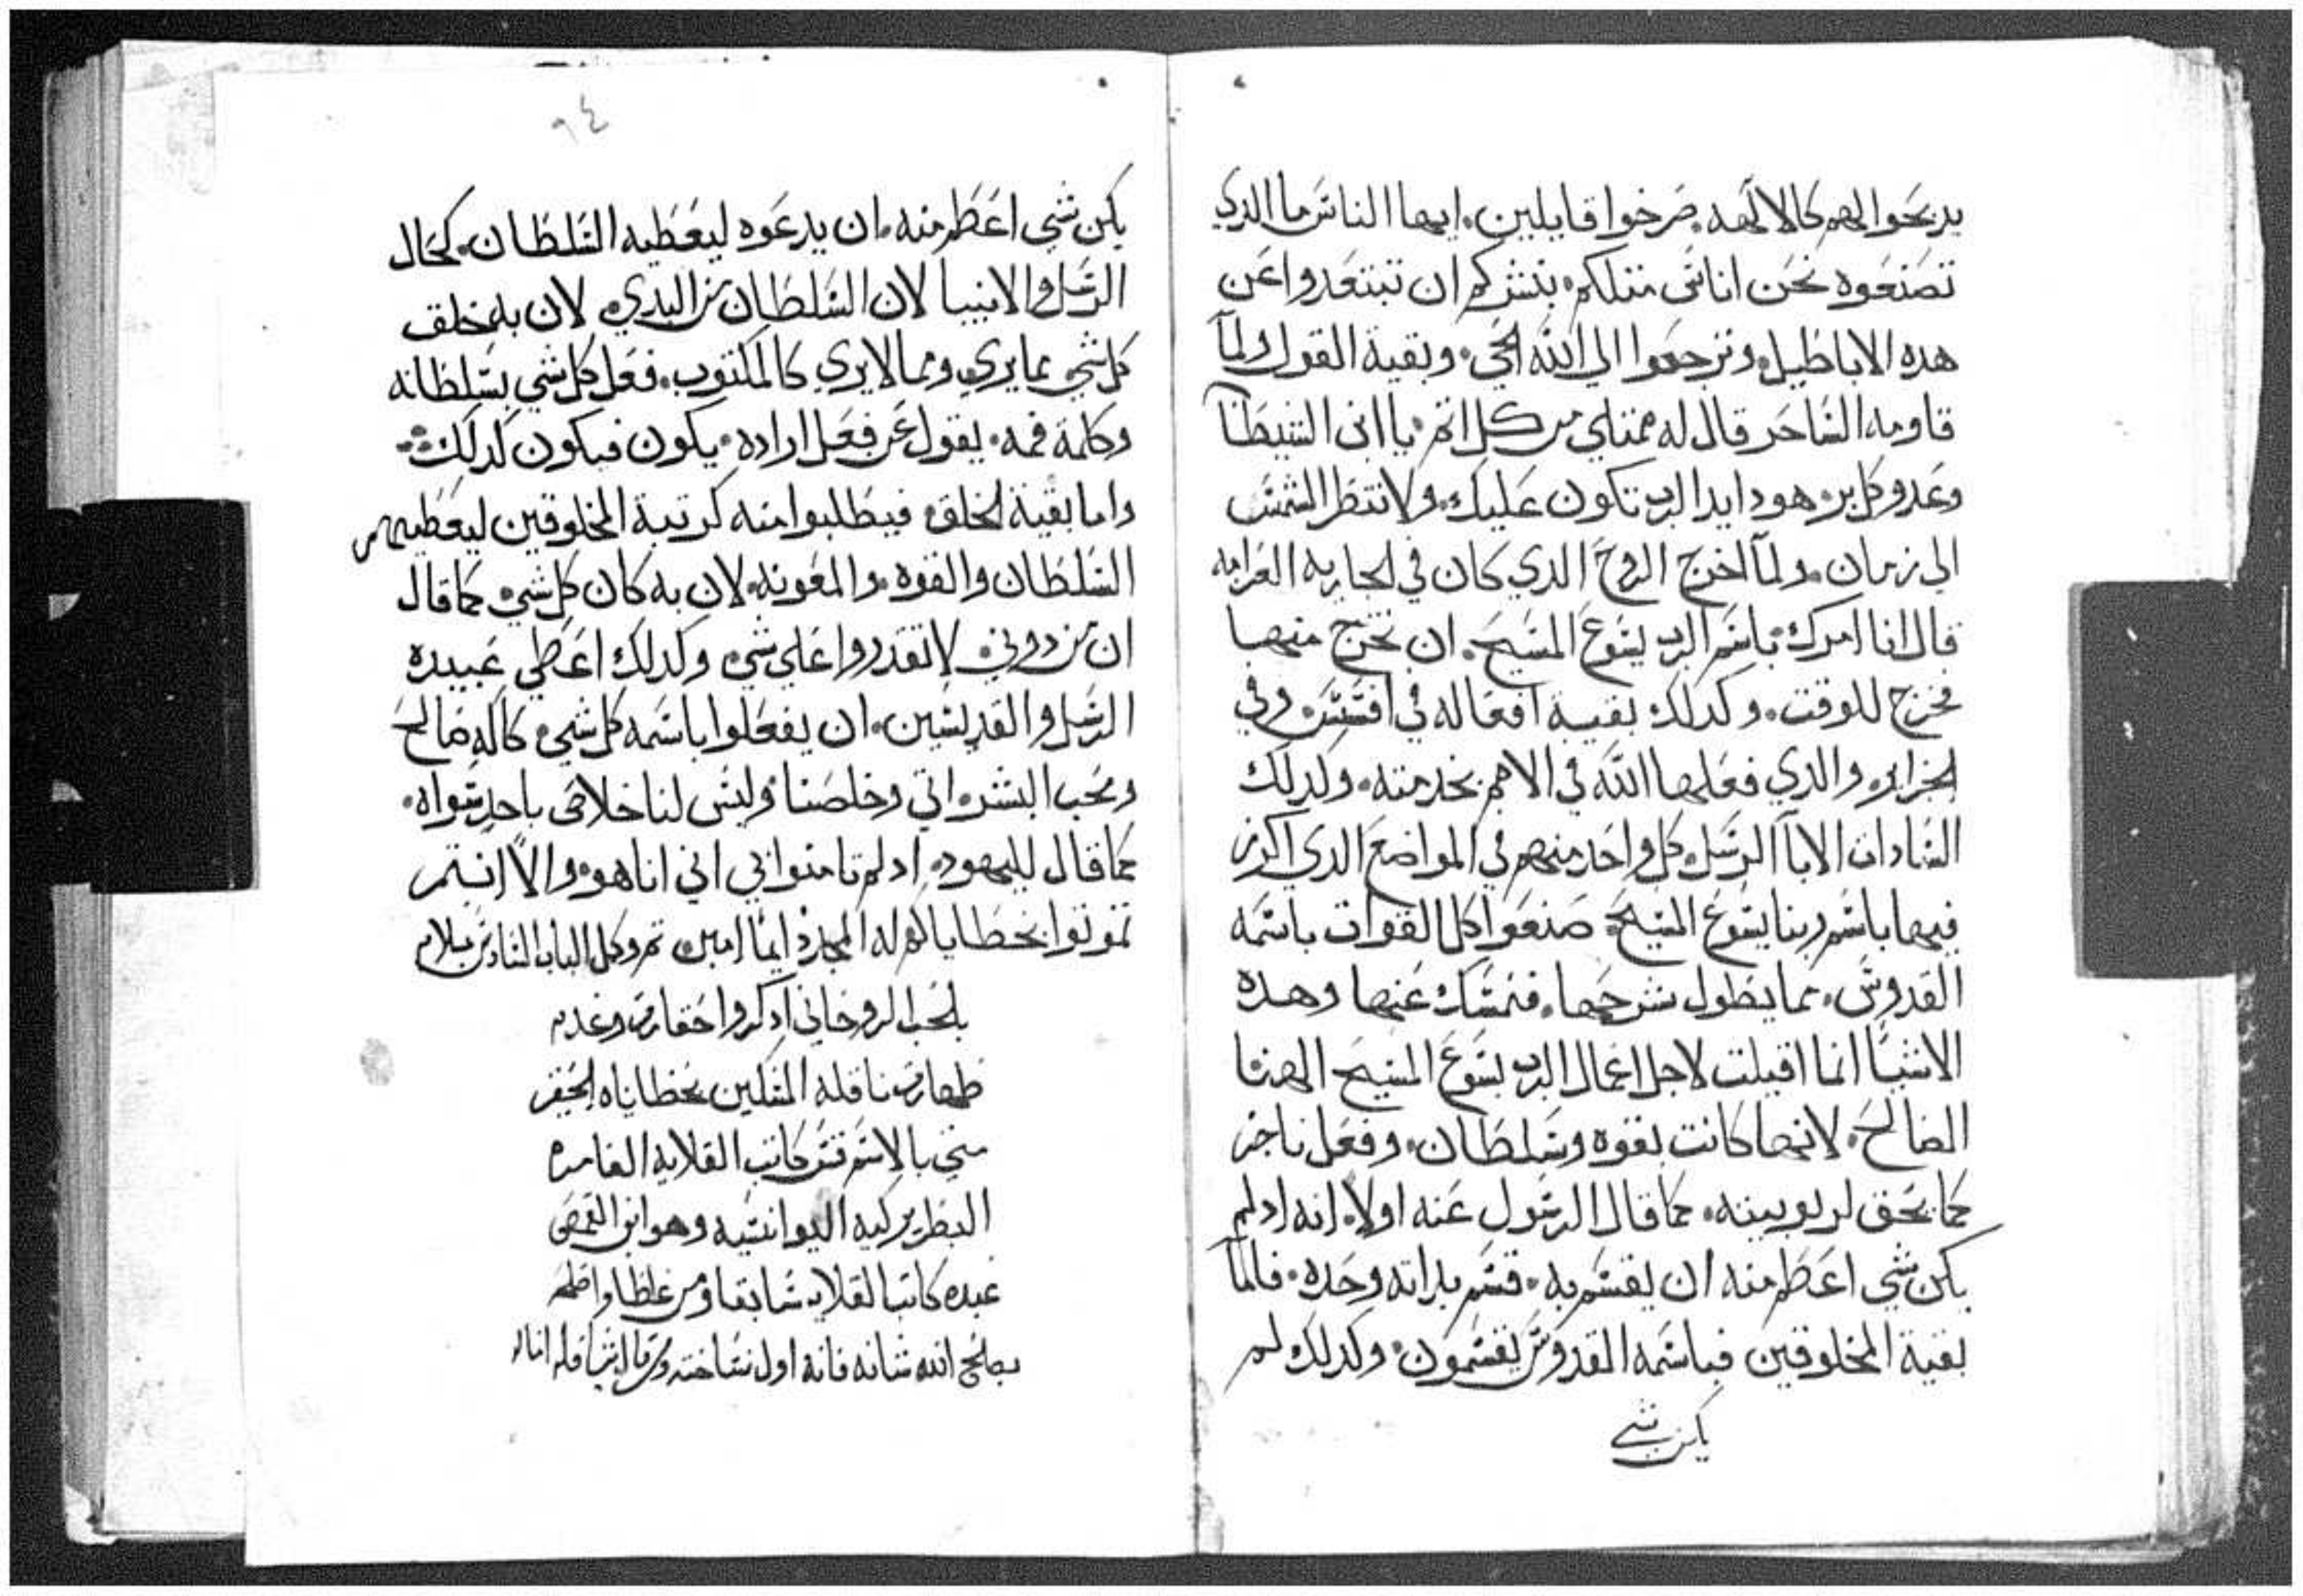 يدبحوا لهم كالالهه. صرخوا قايلين. ايها الناس ما الدي
تصنعوه نحن اناس متلكم. نبشركم ان تبتعدوا عن
هده الاباطيل. وترجعوا الي الله الحي. وبقية القول ولمآ
قاومه الساحر قال له ممتلي من كل اتم. يا ابن الشيطان
وعدو كل بر. هودا يد الرب تكون عليك. ولا تنظر الشمس
الي زمان. ولمآ اخرج الروح الدي كان في الجاريه العرافه
قال انا امرك باسم الرب يسوع المسيح. ان تخرج منها
فخرج للوقت. وكدلك بقية افعاله في افسس. وفي
الجزاير. والدي فعلها الله في الامم بخدمته. وكدلك
السادات الابآ الرسل. كل واحد منهم في المواضع الدي اكرز
فيها باسم ربنا يسوع المسيح. صنعوا كل القوات باسمه
القدوس. مما يطول شرحها. فنمسك عنها وهده
الاشيآ انما اقيلت لاجل اعمال الرب يسوع المسيح الهنا
الصالح. لانها كانت بقوه وسلطان. وفعل ناجز
كما يحق لربوبيته. كما قال الرسول عنه اولا. انه اد لم
يكن شي اعظم منه ان يقسم به. قسم بداته وحده. فاما
بقية المخلوقين فباسمه القدوس يقسمون. وكدلك لم
يكن شي
٩٤
يكن شي اعظم منه. ان يدعوه ليعطيه السلطان. كحال
الرسل والانبيا لان السلطان من البدي. لان به خلق
كل شي مما يري ومما لا يري كالمكتوب. فعل كل شي بسلطانه
وكلمة فمه. يقول عن فعل اراده. يكون فيكون كدلك
واما بقية الخلق. فيطلبوا منه كرتبة المخلوقين ليعطيهم
السلطان والقوه. والمعونه. لان به كان كل شي. كما قال
ان من دوني. لا تقدروا علي شي. وكدلك اعطي عبيده
الرسل والقديسين. ان يفعلوا باسمه كل شي. كاله صالح
ومحب البشر. اتي وخلصنا وليس لنا خلاص باحد سواه.
كما قال لليهود. اد لم تامنوا بي اني انا هو. والا انتم
تموتوا بخطاياكم له المجد دايمآ امين تم وكمل الباب السادس بسلام
بالحب الروحاني ادكروا حقارة وعدم
طهارة ناقله المسكين بخطاياه الحقير
متي بالاسم قس كاتب القلاية العامره
البطريركيه اليوانسيه وهو ابن القمص
عبده كاتب القلايه سابقا ومن غلطا واصلحه
يصلح الله شانه فانه اول نساخته ومن قال شيا فله امثاله